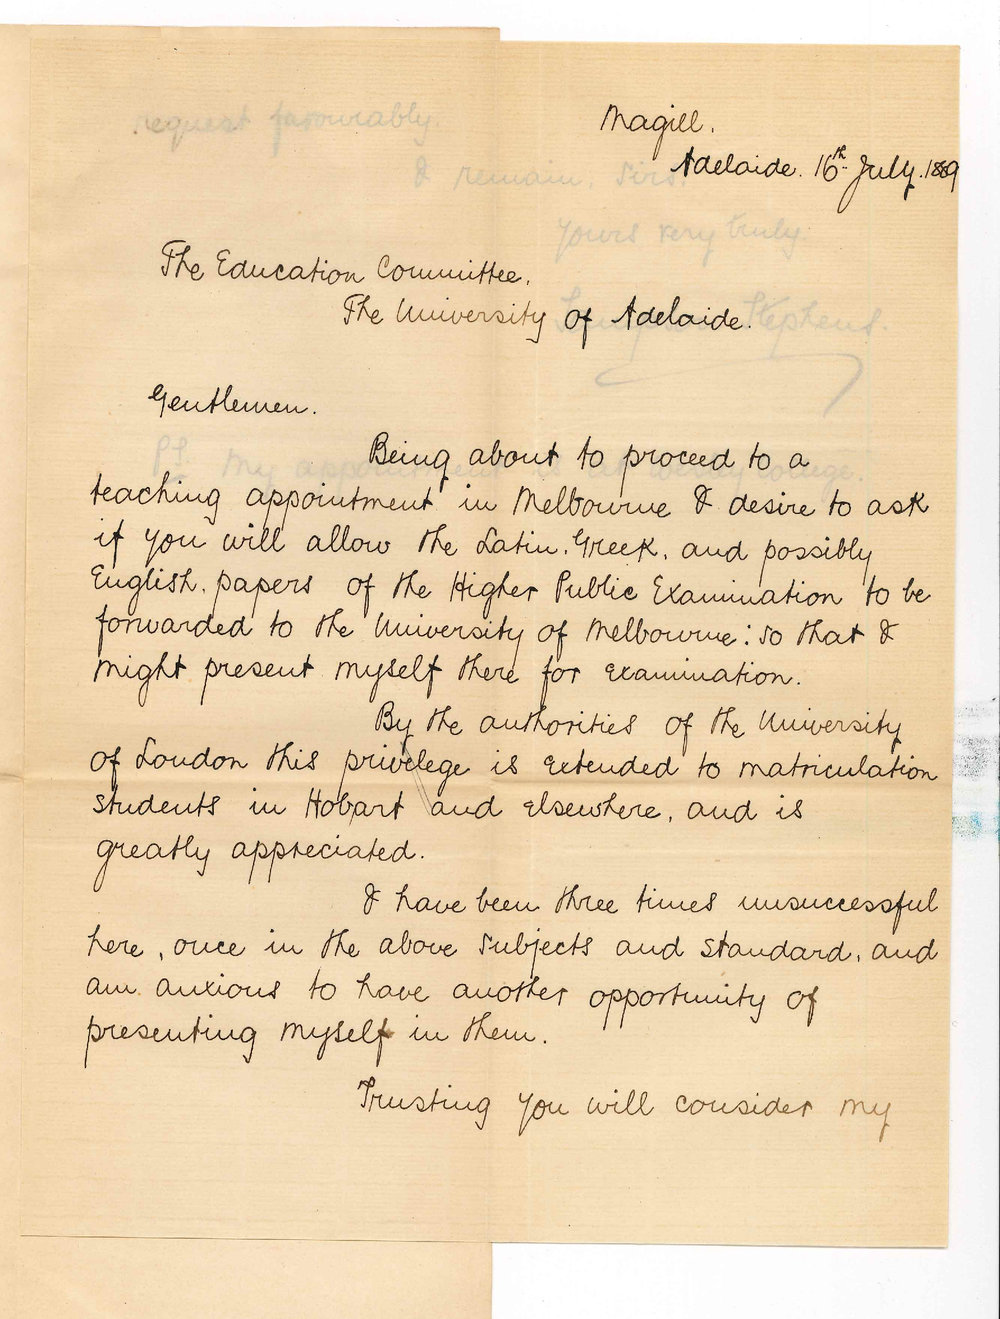 Magill.
Adelaide. 16th July. 1889
The Education Committee.
The University of Adelaide.
Gentlemen.
Being about to proceed to a
teaching appointment in Melbourne I desire to ask
if you will allow the Latin, Greek, and possibly
English, papers of the Higher Public Examination to be
forwarded to the University of Melbourne: so that I
might present myself there for examination.
By the authorities of the University
of London this privelege is extended to matriculation
students in Hobart and elsewhere, and is
greatly appreciated.
I have been three times unsuccessful
here, once in the above subjects and standard, and
am anxious to have another opportunity of
presenting myself in them.
Trusting you will consider my
request favourably.
I remain, Sirs.
Yours very truly
Stephens.
PS. My appointment is at College.